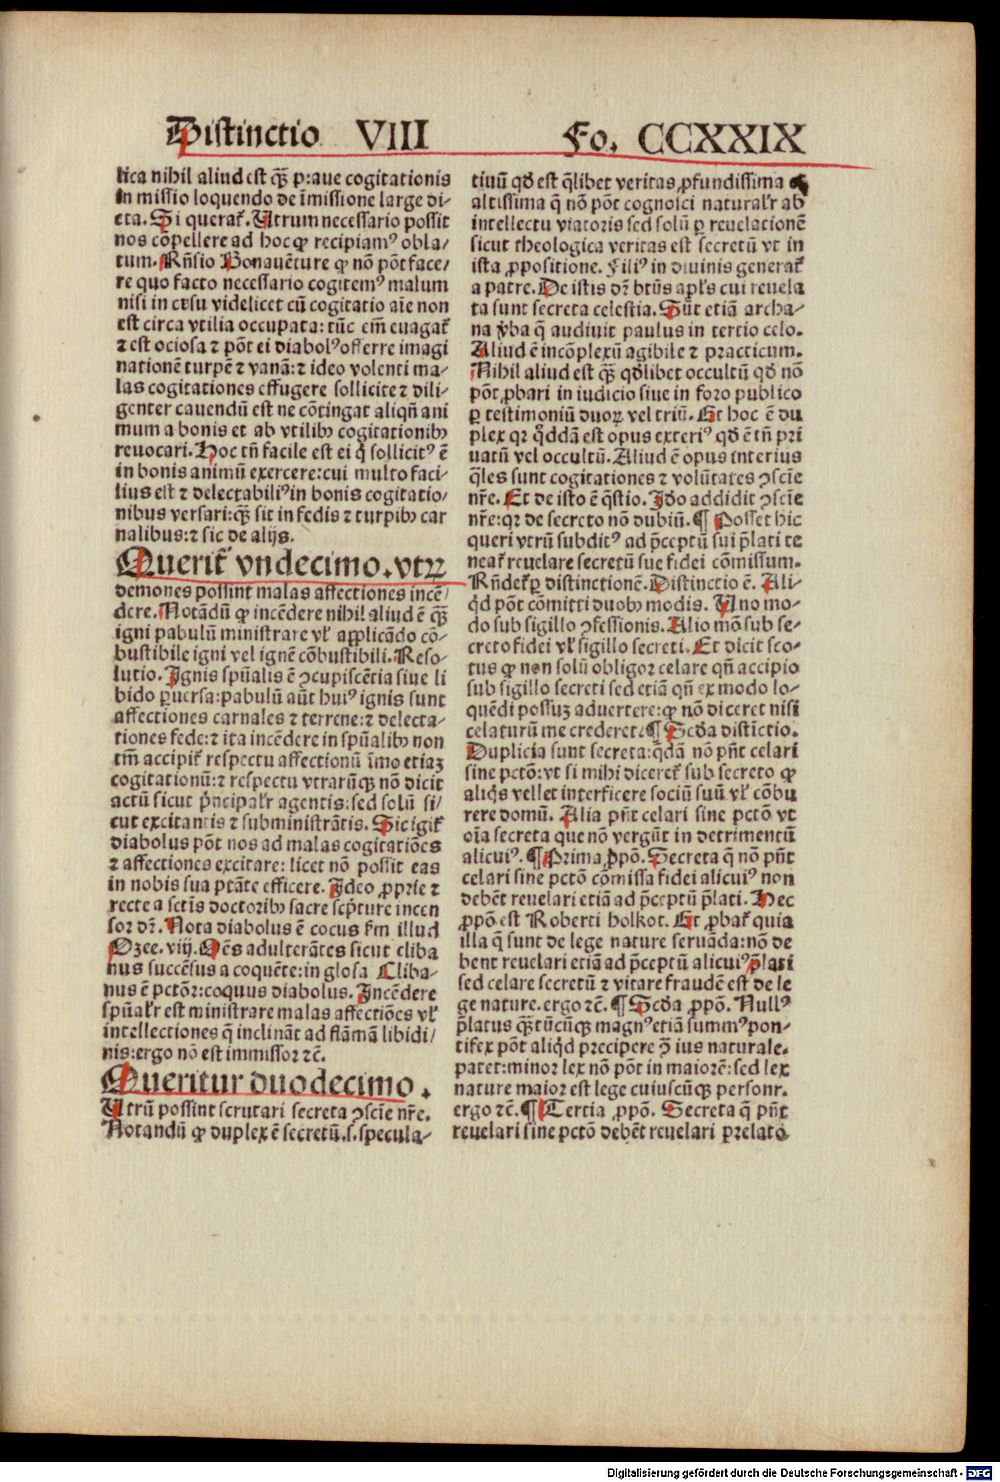 Distinctio VIII Fo. CCXXIX
tica nihil aliud est qȝ̄ praue cogitationis
in missio loquendo de īmissione large di-
cta. Si querat᷑. Utrum necessario possit
nos cōpellere ad hoc ꝙ recipiamꝰ obla/
tum. Rn̄sio Bonauēture ꝙ nō pōt face/
re quo facto necessario cogitemꝰ malum
nisi in casu videlicet cū cogitatio aīe non
est circa vtilia occupata: tūc em̄ euagat᷑
⁊ est ociosa ⁊ pōt ei diabolꝰ offerre imagi
nationē turpē ⁊ vanā: ⁊ ideo volenti ma-
las cogitationes effugere sollicite ⁊ dili-
genter cauendū est ne cōtingat aliqn̄ ani
mum a bonis et ab vtilibꝫ cogitationibꝫ
reuocari. Hoc tn̄ facile est ei q̇ sollicitꝰ ē
in bonis animū exercere: cui multo faci-
lius est ⁊ delectabiliꝰ in bonis cogitatio-
nibus versari: qȝ̄ sit in fedis ⁊ turpibꝫ car
nalibus: ⁊ sic de alijs.
Querit᷑ vndecimo. vtꝝ
demones possint malas affectiones incē/
dere. Notādū ꝙ incēdere nihil aliud ē qȝ̄
igni pabulū ministrare vl̓ applicādo cō-
bustibile igni vel ignē cōbustibili. Reso-
lutio. Ignis spūalis ē ꝯcupiscētia siue li
bido ꝑuersa: pabulū aūt huiꝰ ignis sunt
affectiones carnales ⁊ terrene: ⁊ delecta-
tiones fede: ⁊ ita incēdere in spūalibꝫ non
tm̄ accipit᷑ respectu affectionū īmo etiaꝫ
cogitationū: ⁊ respectu vtrarūqꝫ nō dicit
actū sicut pͥncipal̓r agentis: sed solū si/
cut excitantis ⁊ subministrātis. Sic igit᷑
diabolus pōt nos ad malas cogitatiōes
⁊ affectiones excitare: licet nō possit eas
in nobis sua ptāte efficere. Ideo ꝓprie ⁊
recte a sctīs doctoribꝫ sacre scpͥture incen
sor dr̄. Nota diabolus ē cocus fm̄ illud
Ozee. vij. Oēs adulterātes sicut cliba
nus succēsus a coquēte: in glosa Cliba-
nus ē pctōꝝ: coquus diabolus. Incēdere
spūal̓r est ministrare malas affectiōes vl̓
intellectiones q̄ inclināt ad flāmā libidi/
nis: ergo nō est immissor ⁊c̄.
Queritur duodecimo.
Utrū possint scrutari secreta ꝯscīe nr̄e.
Notandū ꝙ duplex ē secretū. s. specula-
tiuū qd̓ est q̄libet veritas ꝓfundissima ⁊
altissima q̄ nō pōt cognosci natural̓r ab
intellectu viatoris sed solū ꝑ reuelationē
sicut theologica veritas est secretū vt in
ista ꝓpositione. Filiꝰ in diuinis generat᷑
a patre. De istis dr̄ btūs apl̓s cui reuela
ta sunt secreta celestia. Sūt etiā archa-
na v̓ba q̄ audiuit paulus in tertio celo.
Aliud ē incōplexū agibile ⁊ practicum.
Nihil aliud est qȝ̄ qd̓libet occultū qd̓ nō
pōt ꝓbari in iudicio siue in foro publico
ꝑ testimoniū duoꝝ vel triū. Et hoc ē du
plex qꝛ q̇ddā est opus exteriꝰ qd̓ ē tn̄ pri
uatū vel occultū. Aliud ē opus interius
q̄les sunt cogitationes ⁊ volūtates ꝯscīe
nr̄e. Et de isto ē q̄stio. Iđo addidit ꝯscīe
nr̄e: qꝛ de secreto nō dubiū. ¶ Posset hic
queri vtrū subditꝰ ad p̄ceptū sui p̄lati te
neat᷑ reuelare secretū sue fidei cōmissum.
Rn̄det᷑ ꝑ distinctionē. Distinctio ē. Ali-
qd̓ pōt cōmitti duobꝫ modis. Uno mo-
do sub sigillo ꝯfessionis. Alio mō sub se-
creto fidei vl̓ sigillo secreti. Et dicit sco-
tus ꝙ non solū obligor celare qn̄ accipio
sub sigillo secreti sed etiā qn̄ ex modo lo-
quēdi possuꝫ aduertere: ꝙ nō diceret nisi
celaturū me crederet. ¶ Scđa distīctio.
Duplicia sunt secreta: q̄dā nō pn̄t celari
sine pctō: vt si mihi diceret᷑ sub secreto ꝙ
aliq̇s vellet interficere sociū suū vl̓ cōbu
rere domū. Alia pn̄t celari sine pctō vt
oīa secreta que nō vergūt in detrimentū
alicuiꝰ. ¶ Prima ꝓpō. Secreta q̄ nō pn̄t
celari sine pctō cōmissa fidei alicuiꝰ non
debēt reuelari etiā ad p̄ceptū p̄lati. Hec
ꝓpō est Roberti holkot. Et ꝓbat᷑ quia
illa q̄ sunt de lege nature seruāda: nō de
bent reuelari etiā ad p̄ceptū alicuiꝰ p̄lati
sed celare secretū ⁊ vitare fraudē est de le
ge nature. ergo ⁊c̄. ¶ Scđa ꝓpō. Nullꝰ
p̄latus qȝ̄tūcūqꝫ magnꝰ etiā summꝰ pon-
tifex pōt aliqd̓ precipere ꝯ̄ ius naturale.
patet: minor lex nō pōt in maiorē: sed lex
nature maior est lege cuiuscūqꝫ personr.
ergo ⁊c̄. ¶ Tertia ꝓpō. Secreta q̄ pn̄t
reuelari sine pctō debēt reuelari prelato
Digitalisierung gefördert durch die Deutsche Forschungsgemeinschaft - DFG